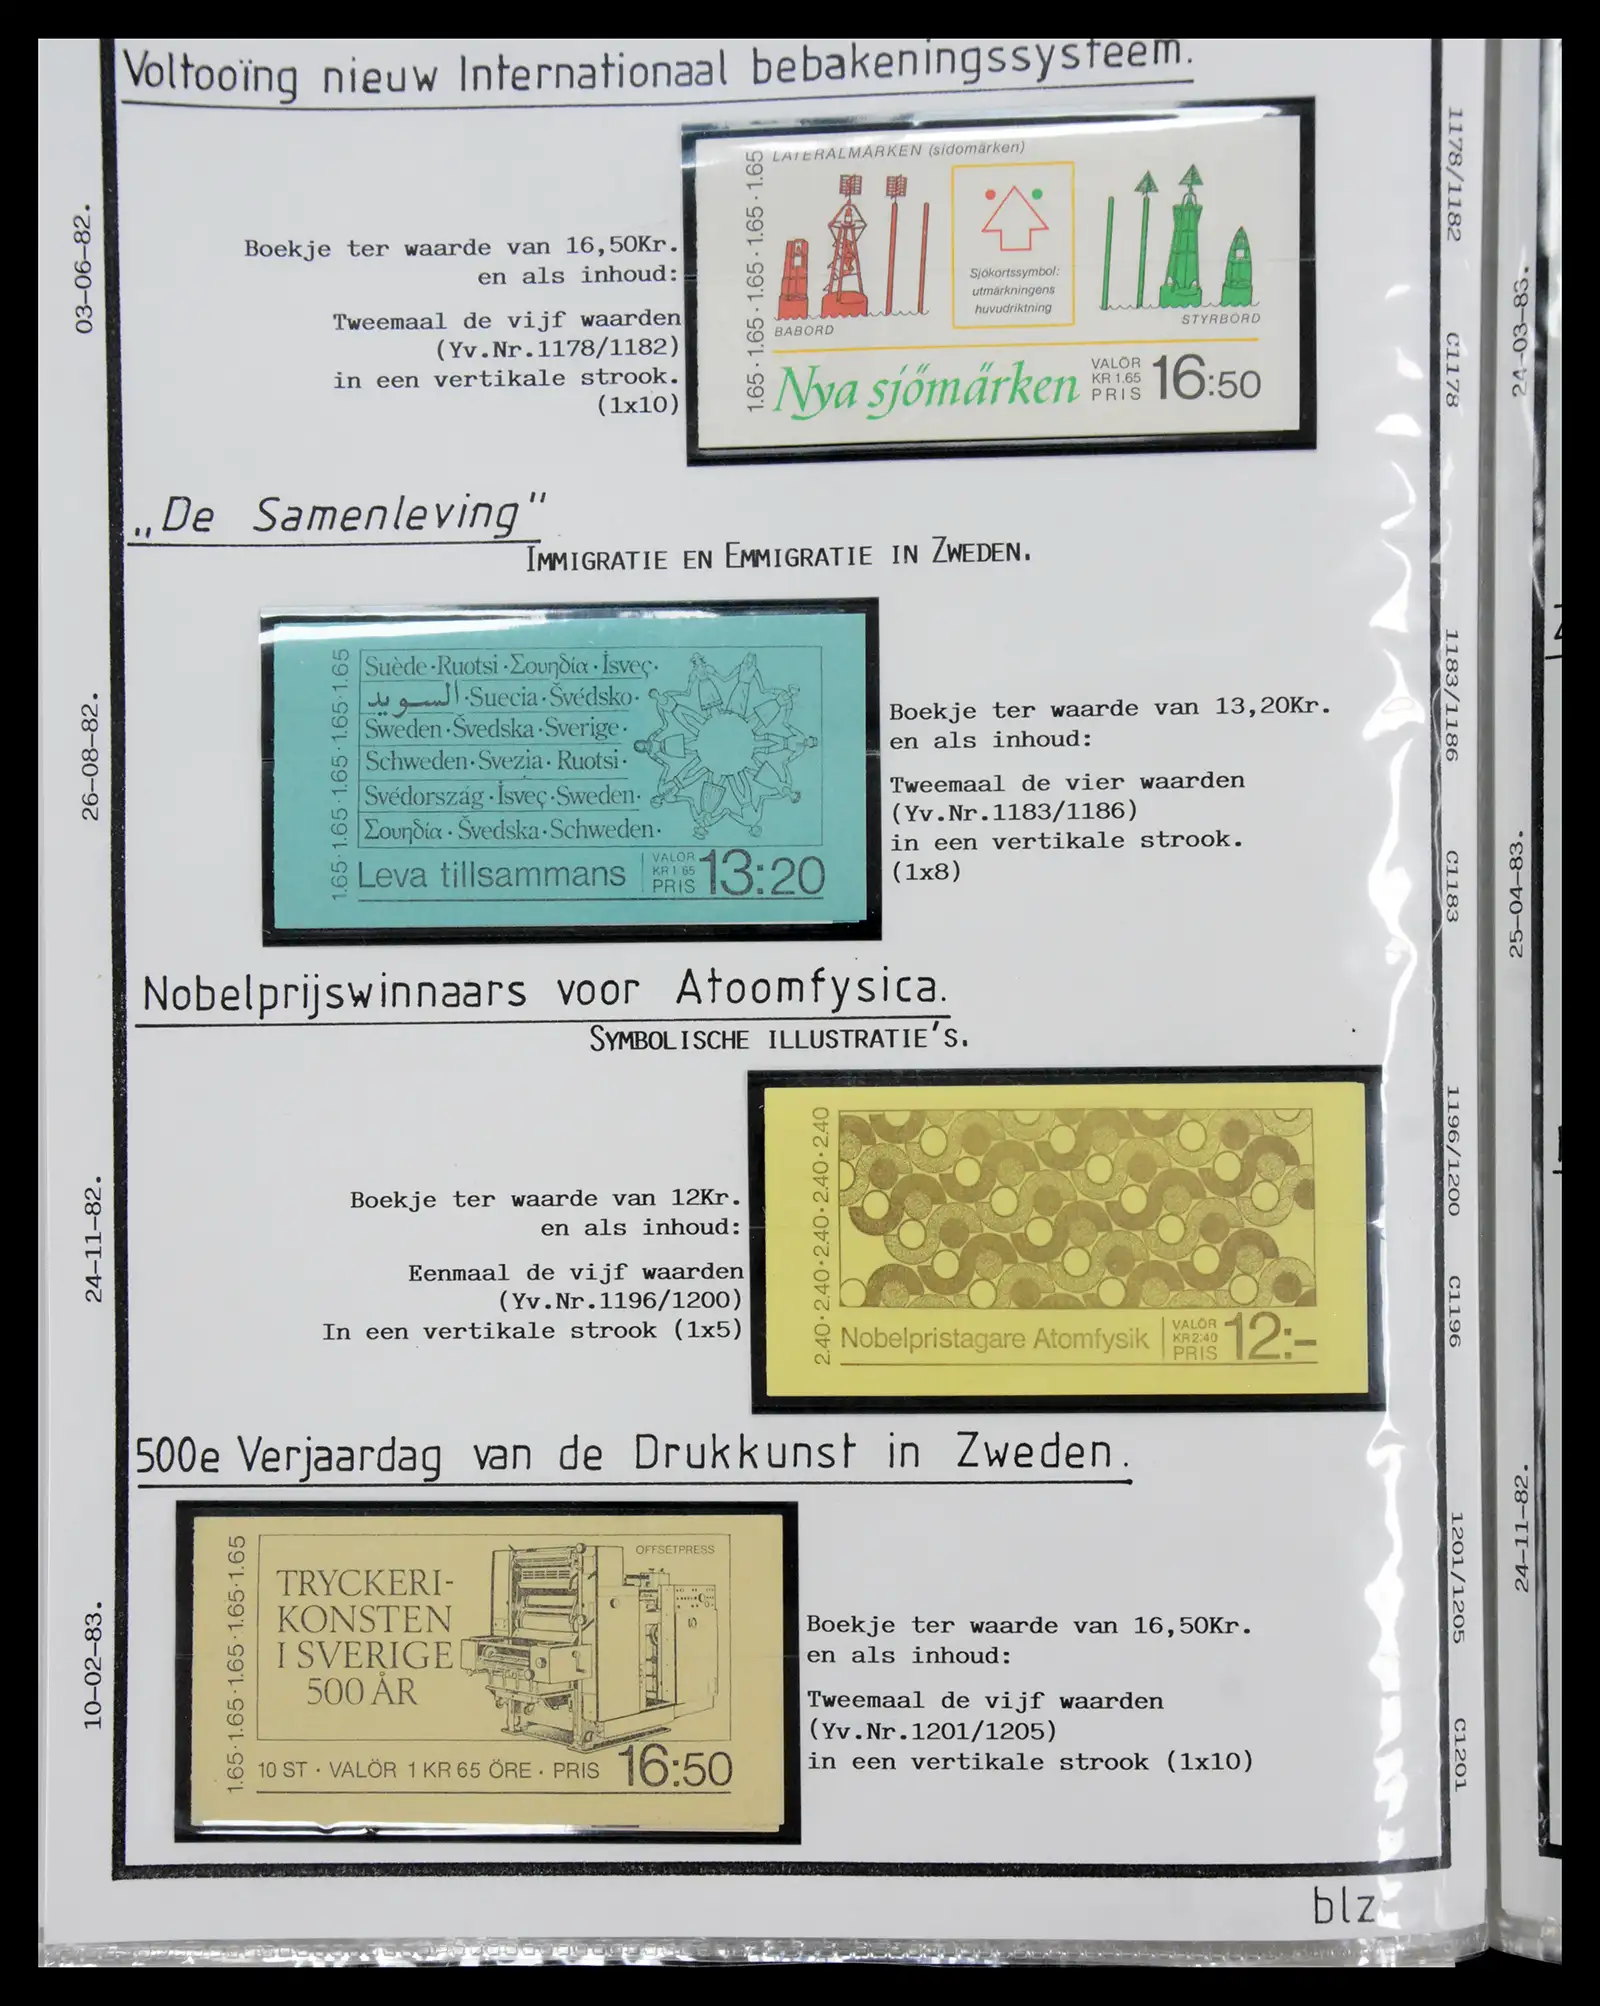 Voltooïng nieuw Internationaal bebakeningssysteem.
03-06-82.
Boekje ter waarde van 16,50Kr.
en als inhoud:
Tweemaal de vijf waarden
(Yv.Nr.1178/1182)
in een vertikale strook.
(1x10)
1.65·1.65·1.65·1.65·1.65
LATERALMÄRKEN (sidomärken)
BABORD
Sjökortssymbol:
utmärkningens
huvudriktning
STYRBORD
Nya sjömärken
VALÖR
KR 1.65
PRIS
16:50
1178/1182
C1178
„De Samenleving"
IMMIGRATIE EN EMMIGRATIE IN ZWEDEN.
26-08-82.
1.65·1.65·1.65·1.65·1.65
Suède·Ruotsi·Σουηδία·İsveç·
السويد·Suecia·Švédsko·
Sweden·Švedska·Sverige·
Schweden·Svezia·Ruotsi·
Svédország·İsveç·Sweden·
Σουηδία·Švedska·Schweden·
Leva tillsammans
VALÖR
KR 1.65
PRIS
13:20
Boekje ter waarde van 13,20Kr.
en als inhoud:
Tweemaal de vier waarden
(Yv.Nr.1183/1186)
in een vertikale strook.
(1x8)
1183/1186
C1183
Nobelprijswinnaars voor Atoomfysica.
SYMBOLISCHE ILLUSTRATIE'S.
24-11-82.
Boekje ter waarde van 12Kr.
en als inhoud:
Eenmaal de vijf waarden
(Yv.Nr.1196/1200)
In een vertikale strook (1x5)
2.40·2.40·2.40·2.40·2.40
Nobelpristagare Atomfysik
VALÖR
KR 2:40
PRIS
12:-
1196/1200
C1196
500e Verjaardag van de Drukkunst in Zweden.
10-02-83.
1.65·1.65·1.65·1.65·1.65
TRYCKERI-
KONSTEN
I SVERIGE
500 ÅR
OFFSETPRESS
10 ST · VALÖR 1 KR 65 ÖRE · PRIS 16:50
Boekje ter waarde van 16,50Kr.
en als inhoud:
Tweemaal de vijf waarden
(Yv.Nr.1201/1205)
in een vertikale strook (1x10)
1201/1205
C1201
blz
24-03-83.
25-04-83.
24-11-82.